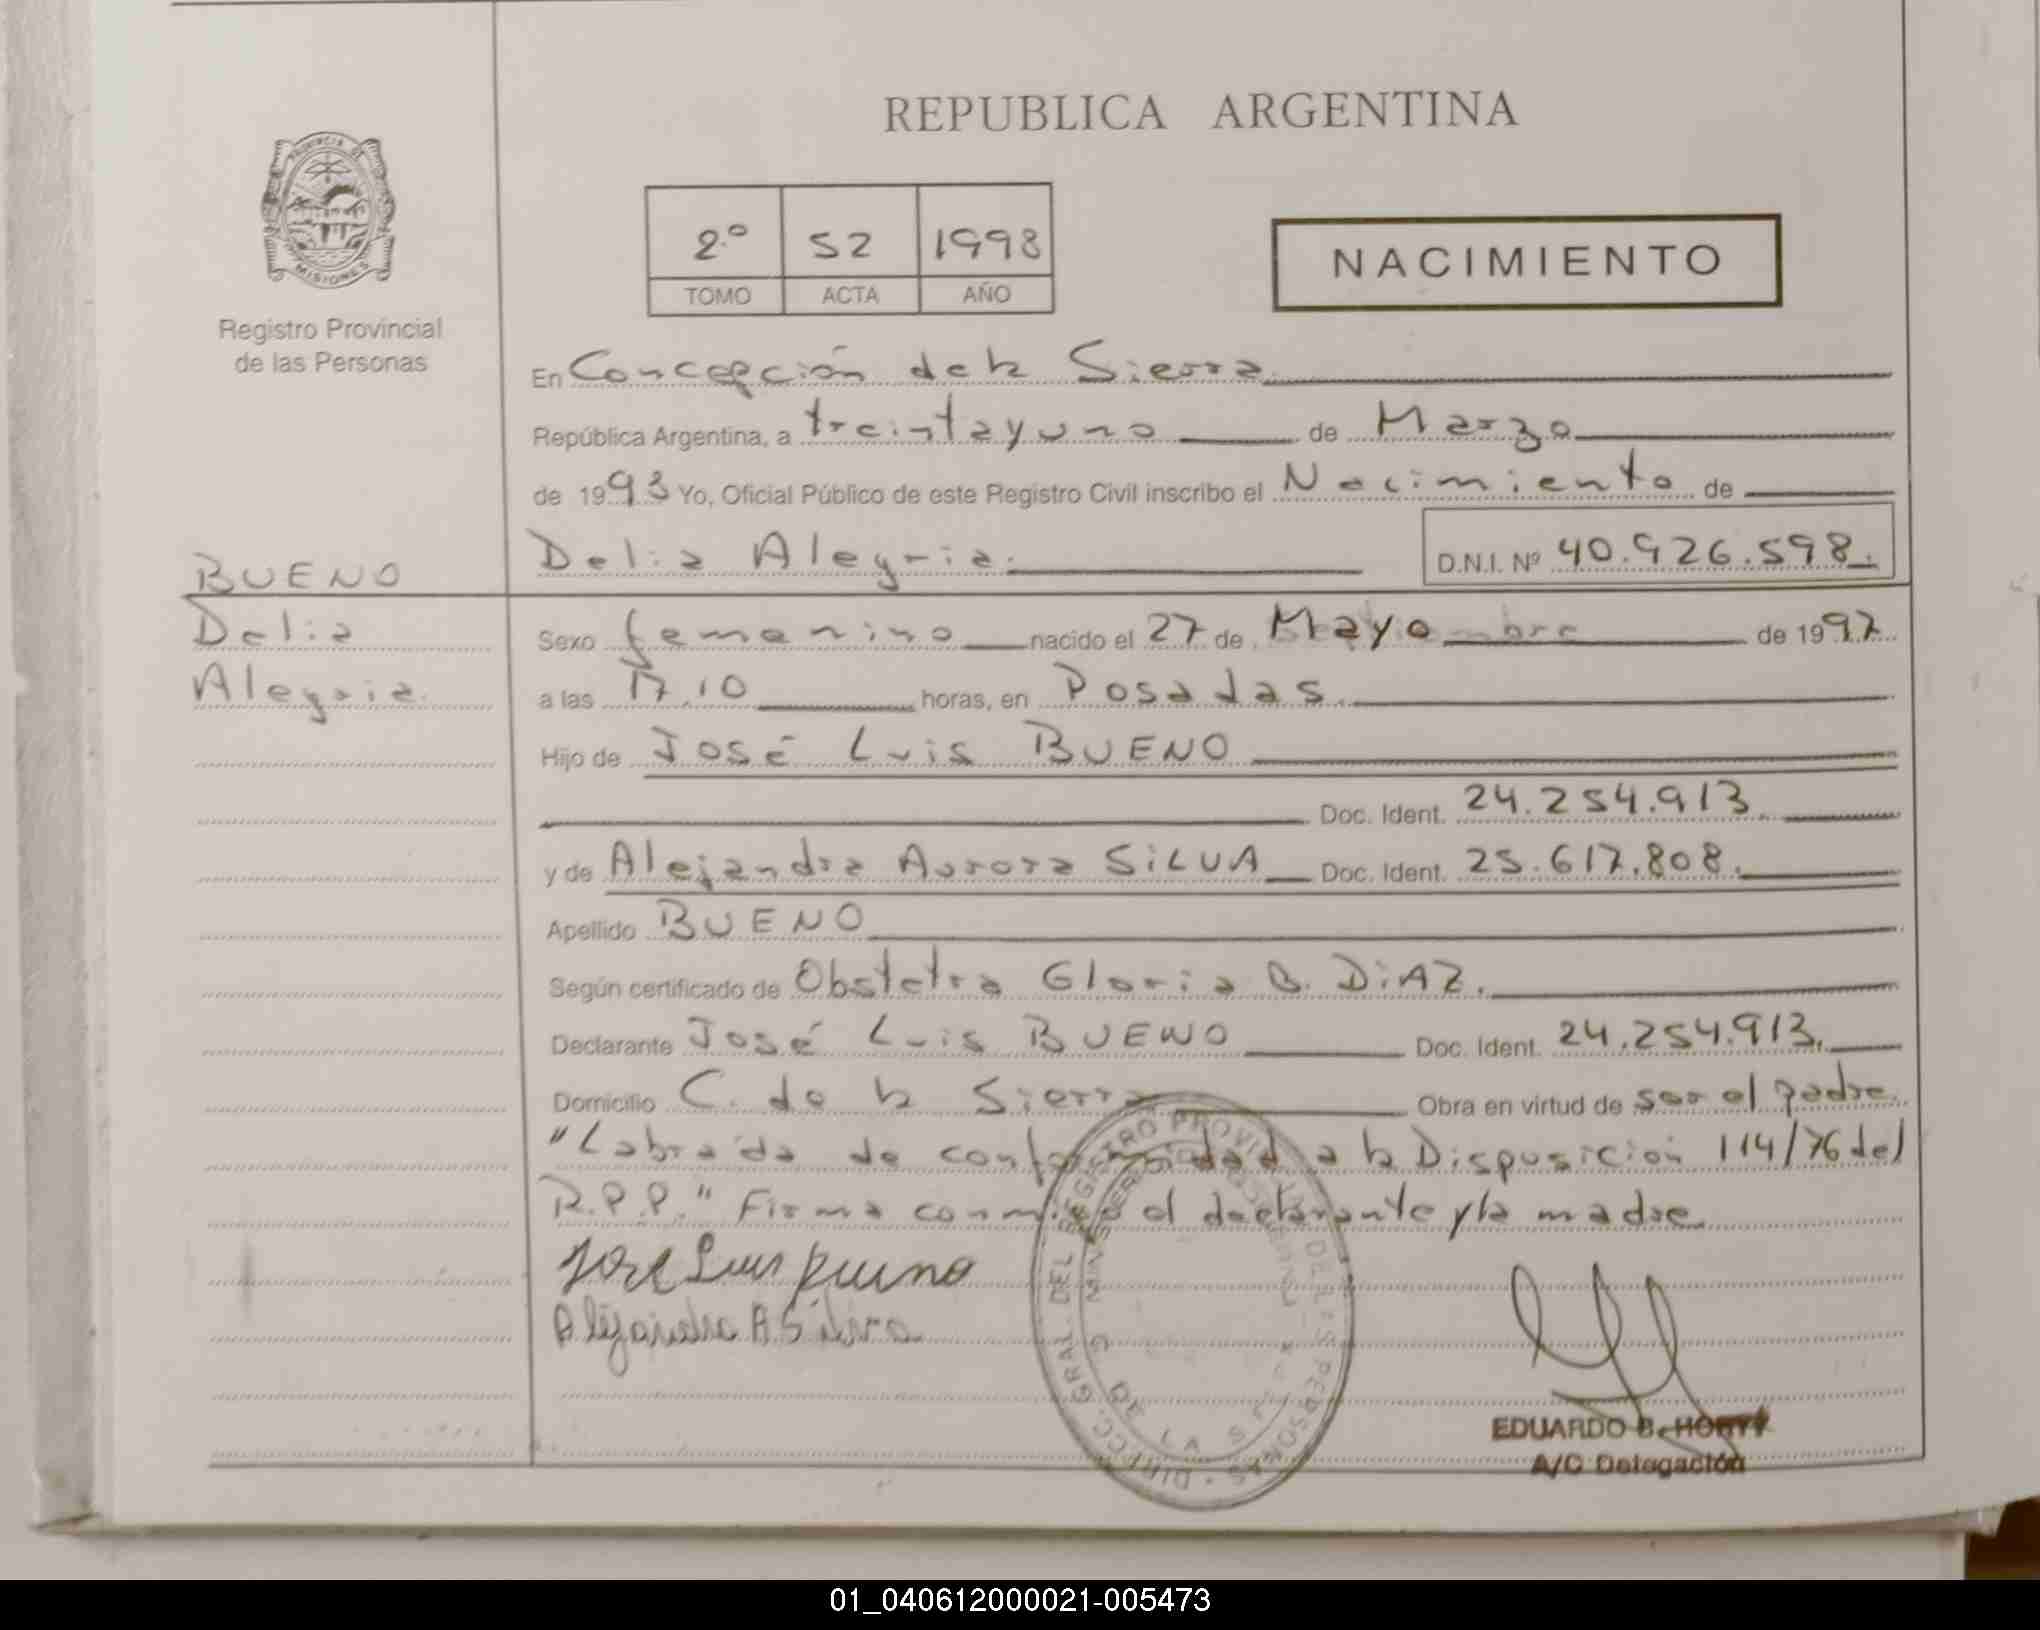 REPUBLICA ARGENTINA
PROVINCIA DE
MISIONES
Registro Provincial
de las Personas
2º 52 1998
TOMO ACTA AÑO
NACIMIENTO
En Concepción de la Sierra
República Argentina, a treinta y uno de Marzo
de 1998 Yo, Oficial Público de este Registro Civil inscribo el Nacimiento de
Delia Alegria. D.N.I. Nº 40.926.598.
BUENO
Delia
Alegria.
Sexo femenino nacido el 27 de Mayo de 1997
a las 17.10 horas, en Posadas.
Hijo de José Luis BUENO
Doc. Ident. 24.254.913.
y de Alejandra Aurora SiLVA Doc. Ident. 25.617.808.
Apellido BUENO
Según certificado de Obstetra Gloria B. DiAZ.
Declarante José Luis BUENO Doc. Ident. 24.254.913.
Domicilio C. de la Sierra Obra en virtud de ser el padre.
"Labrada de conformidad a la Disposición 114/76 del
R.P.P." Firma conmigo el declarante y la madre.
José Luis Bueno
Alejandra A Silva
EDUARDO B.
A/C Delegación
01_040612000021-005473